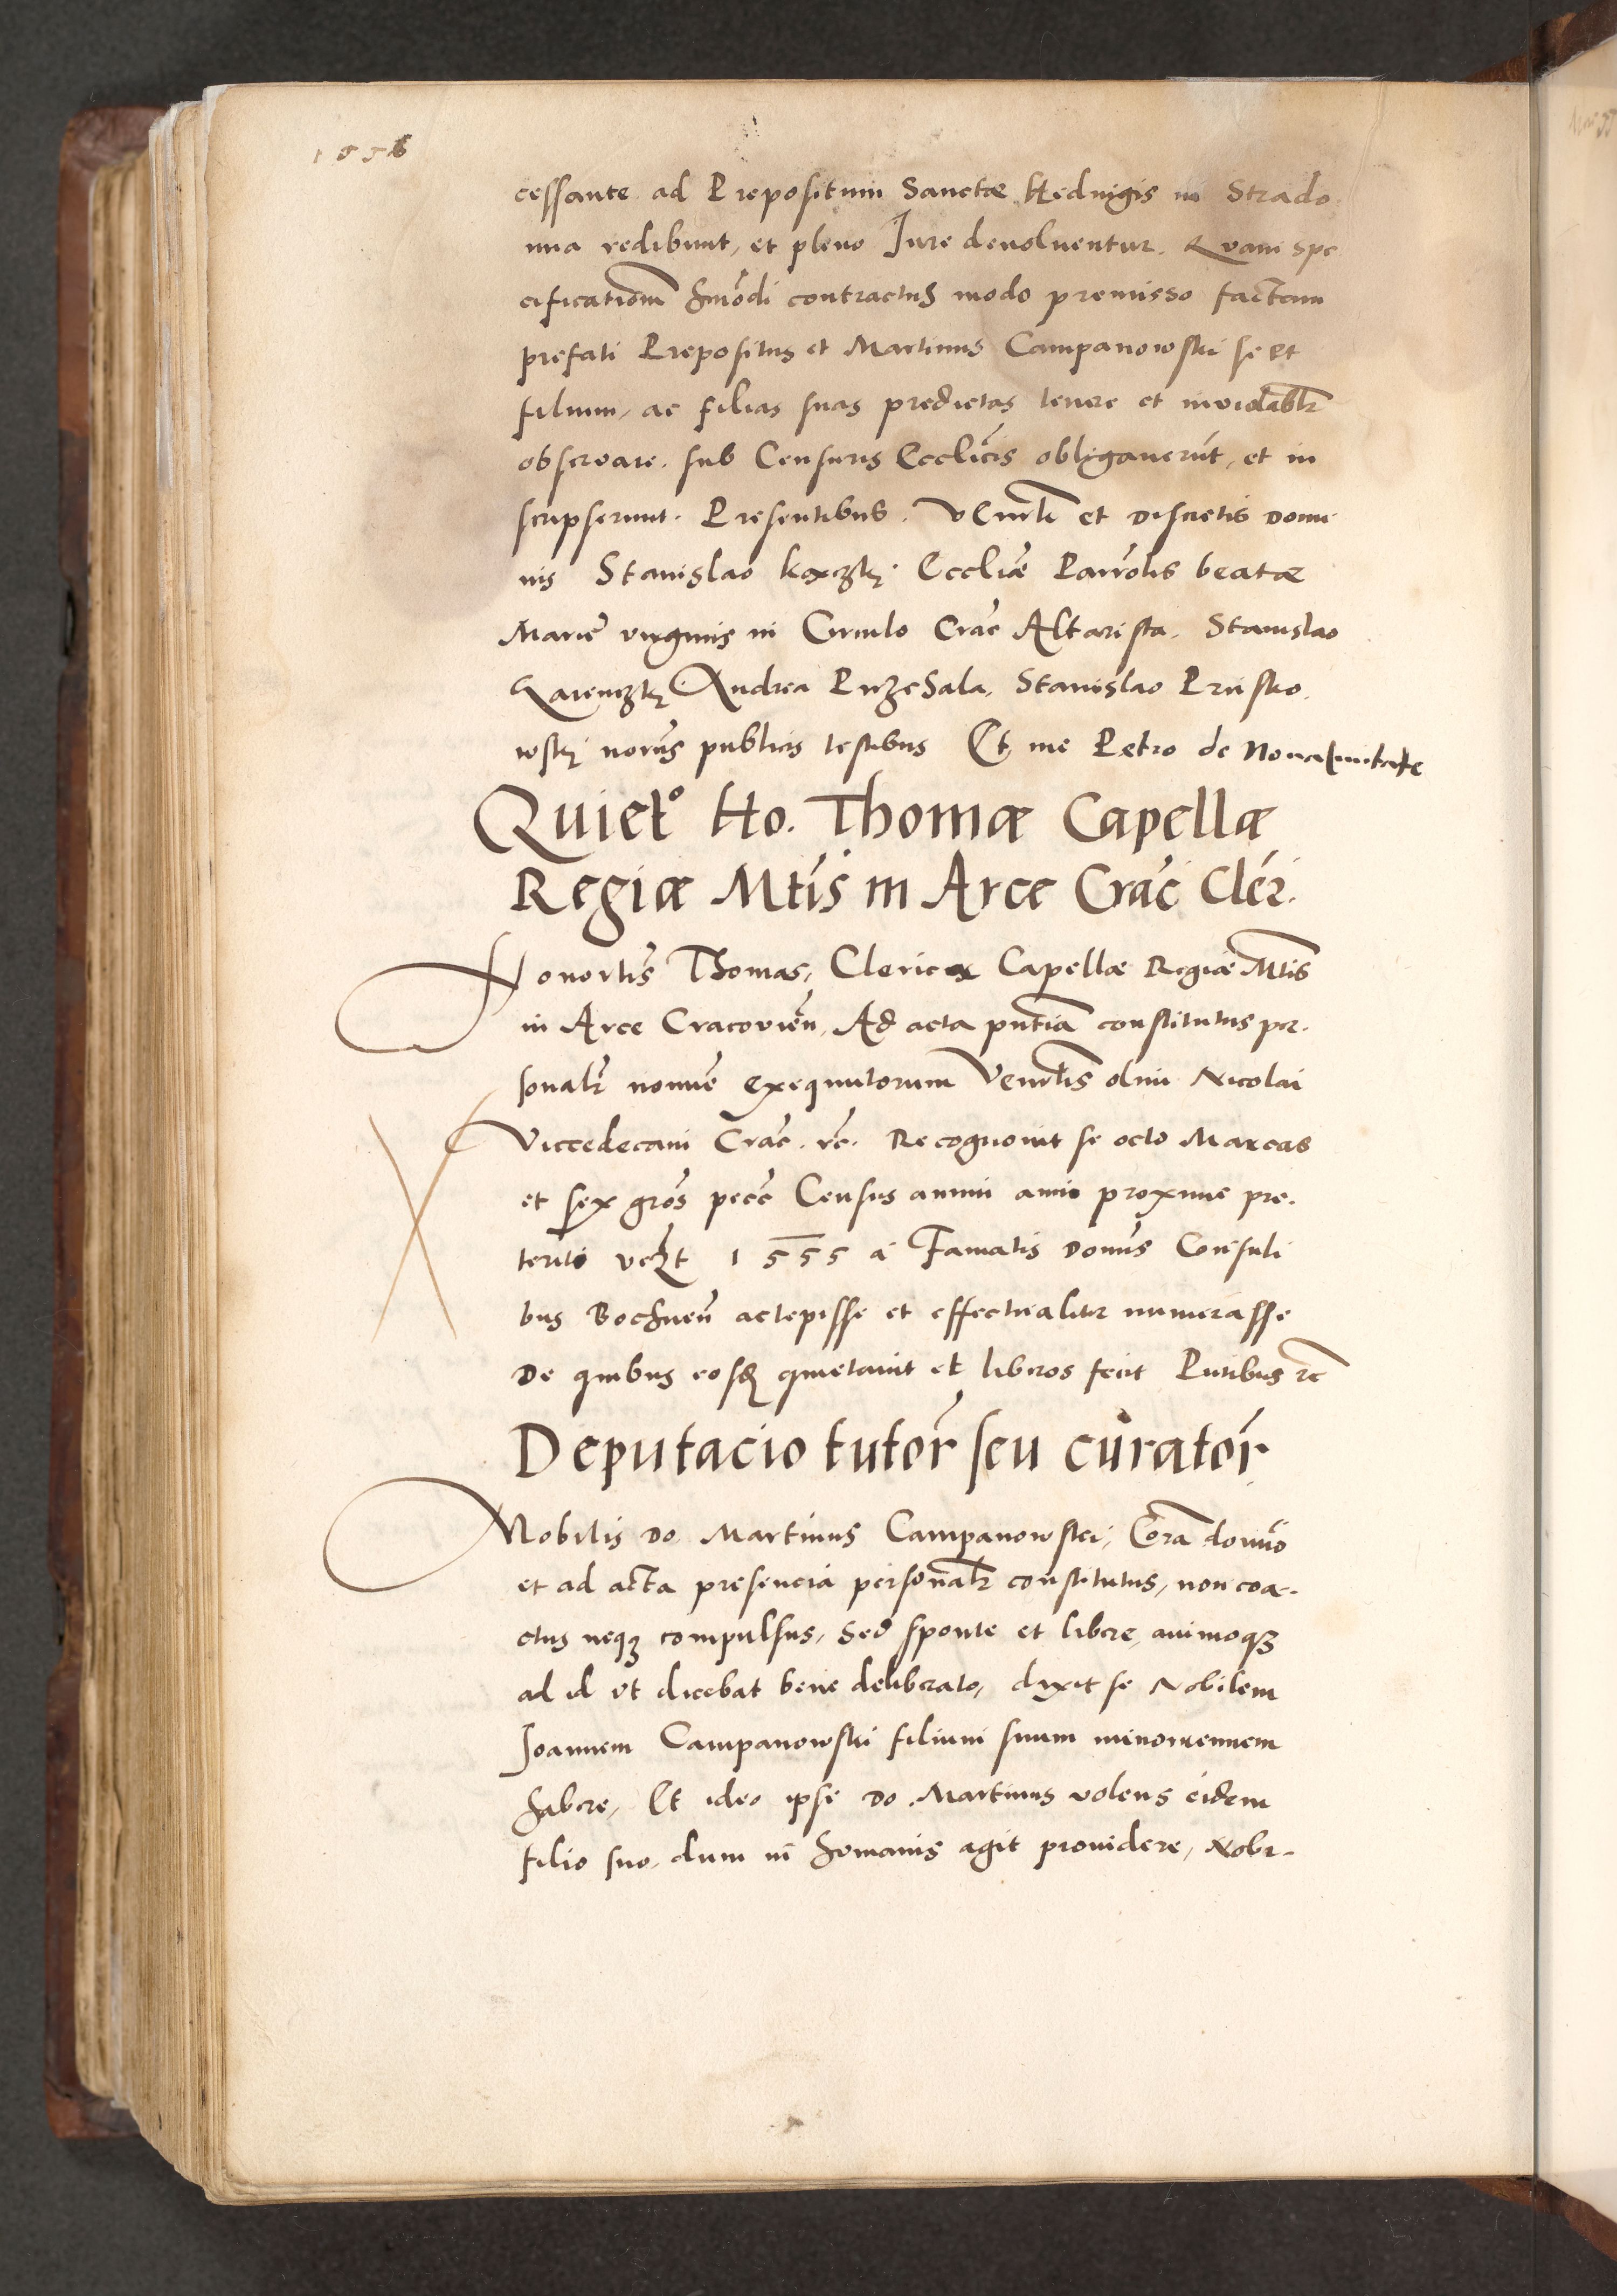 1556
cessante ad Prepositum Sanctæ Heduigis in Strado
mia redibunt, et pleno Jure deuoluentur. Quam spe
cificationem hmodi contractus modo premisso factam
prefati Prepositus et Martinus Campanowski se et
filium, ac filias suas predictas tenere et inviolablr
observare. sub Censuris Ecclicis obligauerut, et in
scripserunt. Presentibus. Venrli et discretis domi
nis Stanislao Ecclie Parrolis beatæ
Marie virginis in Circulo Crac Altarista. Stanislao
Andrea Stanislao
wskj noriis publicis testibus Et me Petro de Nouaciuitate
Quiet° Ho. Thomæ Capellæ
Regiæ Mtis in Arce Crac Cler.
Honorlis Thomas, Clericus Capellæ Regiæ Mtis
in Arce Cracovien, Ad acta pntia constitutus per.
sonalr nomine exequutorum Venrlis olim Nicolai
Viccedecani Crac. rc. Recognouit se octo Marcas
et sex gros pecc Census annui anni proxime pre.
teriti vczt 1555 a Famatis Domis Consuli
bus Bochnen accepisse et effectualiter numerasse
De quibus eosq quietauit et liberos fecit Pntibus rc
Deputacio tutor seu curator
Nobilis Do Martinus Campanowski, Cora domio
et ad acta presencia personalr constitutus, non coa.
ctus neqz compulsus, Sed sponte et libere, animoqz
ad id ut dicebat bene deliberato, dixit se Nobilem
Joannem Campanowski filium suum minorennem
habere, Et ideo ipse Do Martinus volens eidem
filio suo, dum in humanis agit prouidere, Nobi-